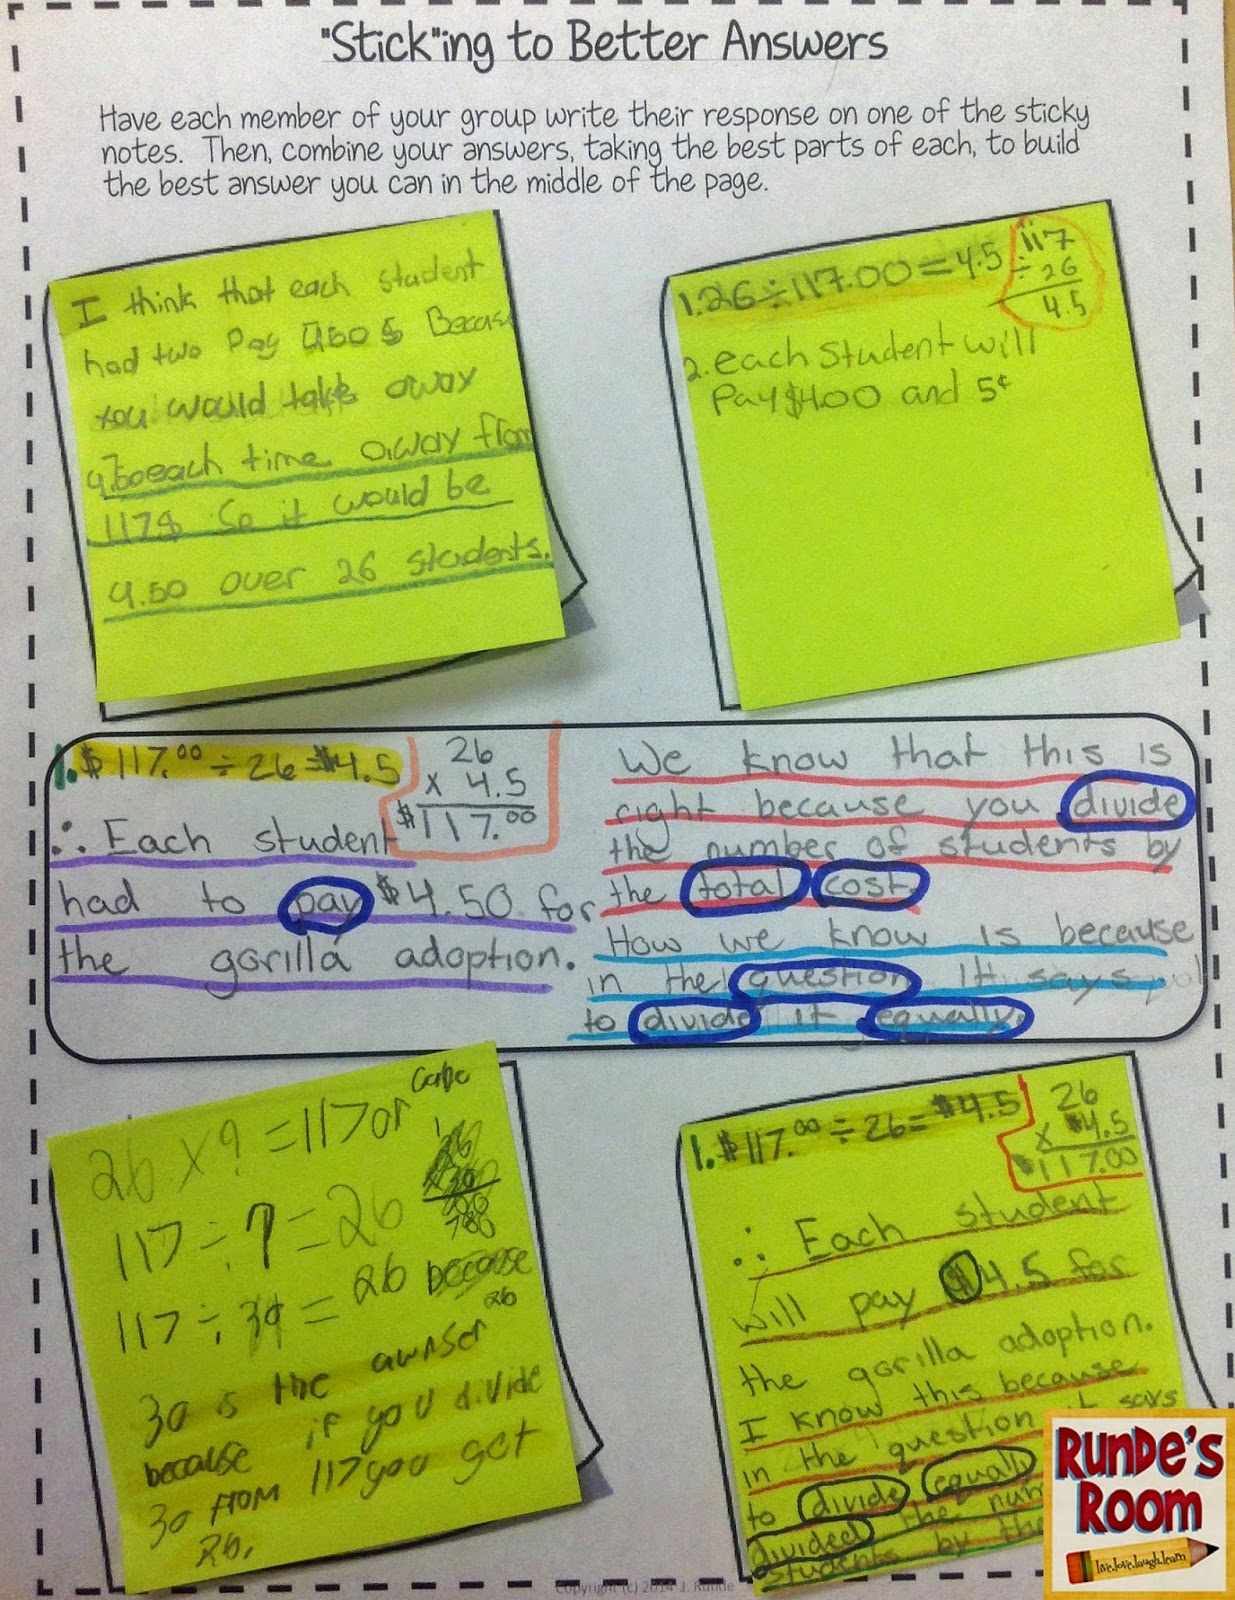 "Stick"ing to Better Answers
Have each member of your group write their response on one of the sticky
notes. Then, combine your answers, taking the best parts of each, to build
the best answer you can in the middle of the page.
I think that each student
had two Pay 4.50 $ Becaus
you would take away
4.50 each time away from
117$ So it would be
4.50 over 26 students.
1. 26 ÷ 117.00 = 4.5
117
÷ 26
4.5
2. each Student will
Pay $4.00 and 5¢
1. $117.00 ÷ 26 = $4.5
26
x 4.5
$117.00
∴ Each student
had to pay $4.50 for
the gorilla adoption.
We know that this is
right because you divide
the number of students by
the total cost.
How we know is because
in the question it says
to divide it equally.
26 x ? = 117 or
117 ÷ ? = 26
117 ÷ = 26 because
26
30 is the awnser
because if you divide
30 from 117 you get
26.
1. $117.00 ÷ 26 = $4.5
26
x $4.5
$117.00
∴ Each student
will pay $4.5 for
the gorilla adoption.
I know this because
in the question it says
to divide equally
divided the num
students by the
Copyright (c) 2014 J. Runde
RUNDE'S
ROOM
live.love.laugh.learn